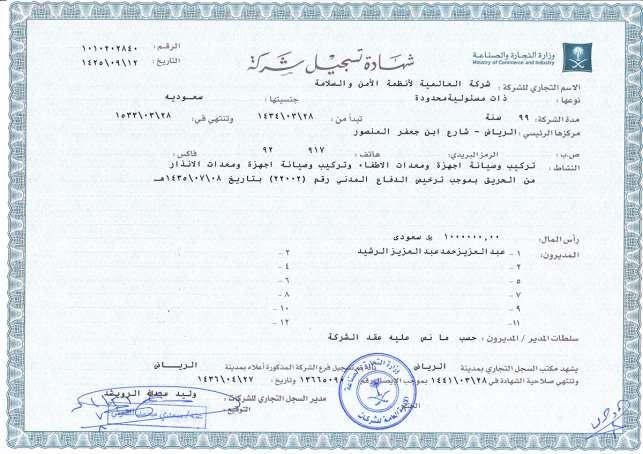 وزارة التجارة والصناعة
Ministry of Commerce and Industry
شهادة تسجيل شركة
الرقم : ١٠١٠٢٠٢٨٤٠
التاريخ : ١٤٢٥/٠٩/١٢
الاسم التجاري للشركة : شركة العالمية لأنظمة الأمن والسلامة
نوعها : ذات مسئولية محدودة جنسيتها : سعوديه
مدة الشركة : ٩٩ سنة تبدأ من : ١٤٣٤/٠٣/٢٨ وتنتهي في : ١٥٣٣/٠٣/٢٨
مركزها الرئيسي : الرياض - شارع ابن جعفر المنصور
ص.ب : الرمز البريدي : هاتف : ٩١٧ ٩٢ فاكس :
النشاط : تركيب وصيانة اجهزة ومعدات الاطفاء وتركيب وصيانة اجهزة ومعدات الانذار
من الحريق بموجب ترخيص الدفاع المدني رقم (٢٢٠٠٢) بتاريخ ١٤٣٥/٠٧/٠٨هـ
رأس المال : ١٠٠٠٠٠٠,٠٠ ريال سعودى
المديرون : ١- عبدالعزيز حمد عبدالعزيز الرشيد ٢-
٣- ٤-
٥- ٦-
٧- ٨-
٩- ١٠-
١١- ١٢-
سلطات المدير / المديرون : حسب ما نص عليه عقد الشركة
يشهد مكتب السجل التجاري بمدينة الرياض بأنه تم تسجيل فرع الشركة المذكورة أعلاه بمدينة الرياض
وتنتهي صلاحية الشهادة في ١٤٤١/٠٣/٢٨ بموجب الإيصال رقم وتاريخ : ١٤٣٦/٠٤/٢٧
مدير السجل التجاري للشركات :
التوقيع :